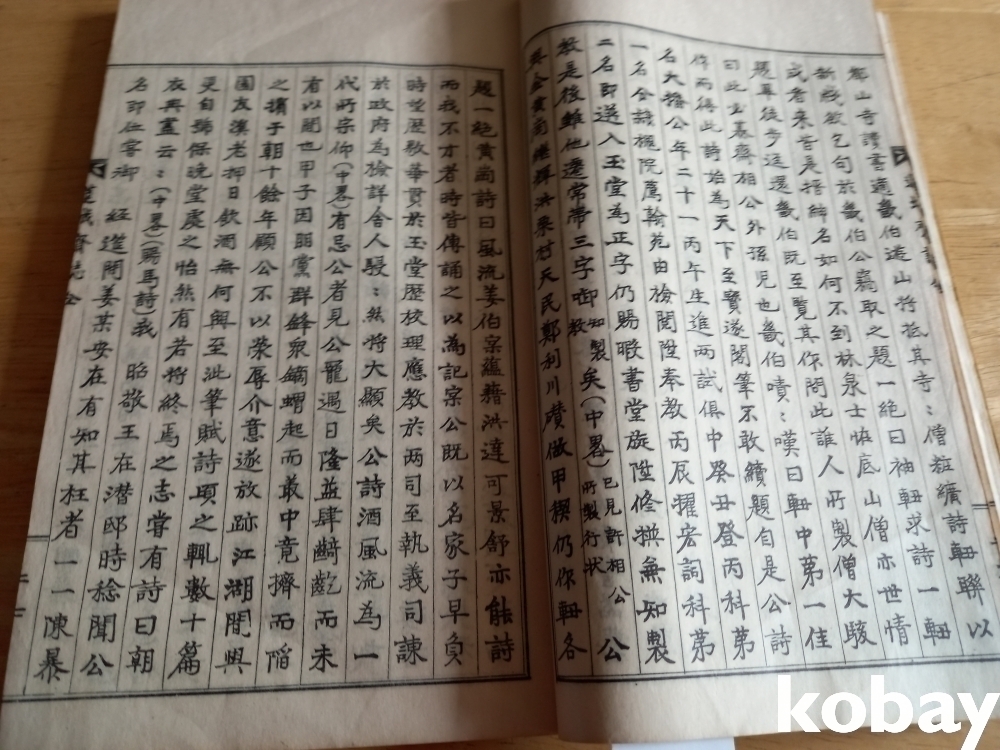 山寺讀書適畿伯造山將抵其寺〻僧粧纊詩軸聯以
新綾欲乞句於畿伯公竊取之題一絶曰袖軸求詩一軸
或者來告長揖紳名如何不到林泉士恠底山僧亦世情
題畢徒步逕還畿伯既至覽其作問此誰人所製僧大駭
曰此公慕齋相公外孫兒也畿伯嘖〻嘆曰軸中第一佳
作而得此詩始為天下至寶遂閣筆不敢續題自是公詩
名大播公年二十一丙午生進兩試俱中癸丑登丙科第
一名令隷槐院薦翰苑由檢閱陞奉教丙辰擢宏詞科第
二名即送入玉堂為正字仍賜暇書堂旋陞修撰無知製
教是後雖他遷常帶三字啣知製教矣(中畧)已見許相公所製行狀公
與金黃岡繼輝洪栗村天民鄭利川礥做甲稧仍作軸各
題一絶黃岡詩曰風流姜伯宗蘊藉洪達可景舒亦能詩
而我不才者時皆傳誦之以為記宗公既以名家子早負
時望歷敭華貫於玉堂歷校理應教於两司至執義司諫
於政府為檢詳舍人駸〻然將大顯矣公詩酒風流為一
代所宗仰(中畧)有忌公者見公寵遇日隆益肆齮齕而未
有以間也甲子因翦黨群鋒衆鏑蝟起而叢中竟擠而陷
之擯于朝十餘年顧公不以榮辱介意遂放跡江湖間與
國友漢老押日飲酒無何興至泚筆賦詩頃之輒數十篇
更自號保晚堂處之怡然有若將終焉之志嘗有詩曰朝
衣典盡云〻(中畧)(賜馬詩)我 昭敬王在潛邸時稔聞公
名即位客御 經筵問姜某安在有知其枉者一一陳暴
kobay